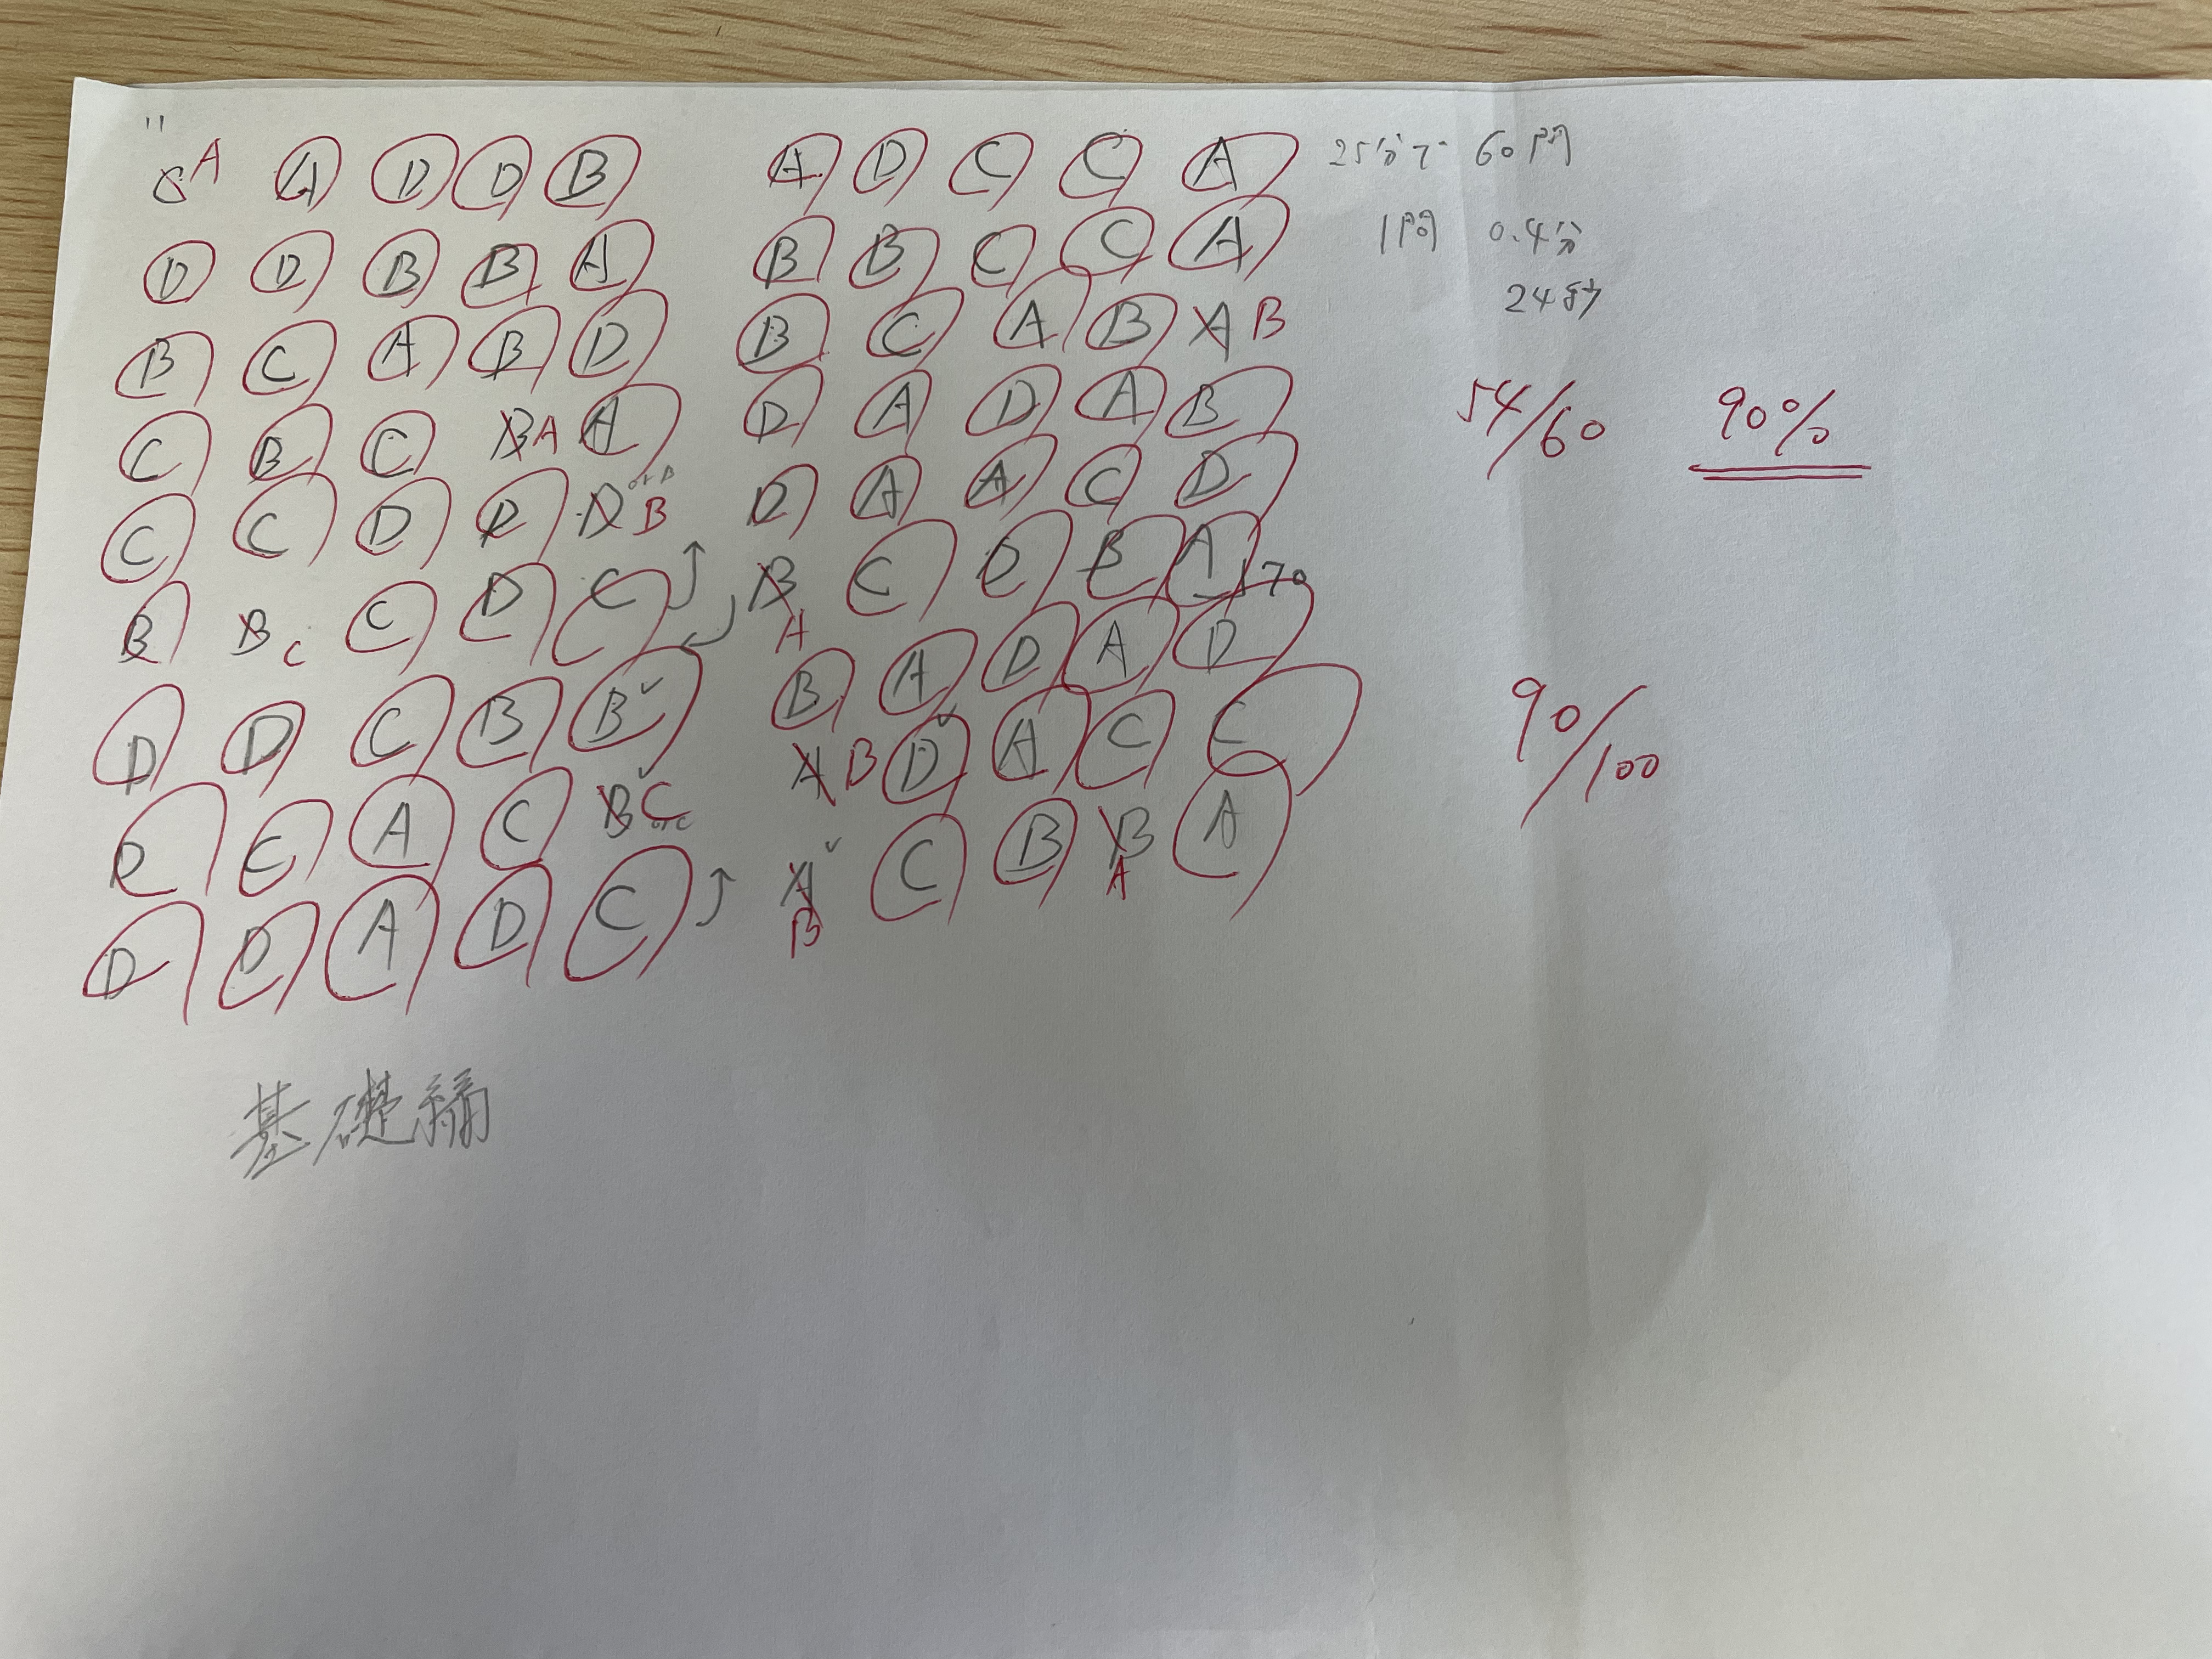 C A A D D B A D C C A 25分で 60問
D D B B A B B C C A 1問 0.4分
24秒
B C A B D B C A B A B
C B C B A A D A D A B 54/60 90%
C C D D D or B B D A A C D
B B C C D C B A C D B A 170
D D C B B B A D A D
D C A C B C or C A B D A C C 90/100
D D A D C A B C B B A A
基礎編